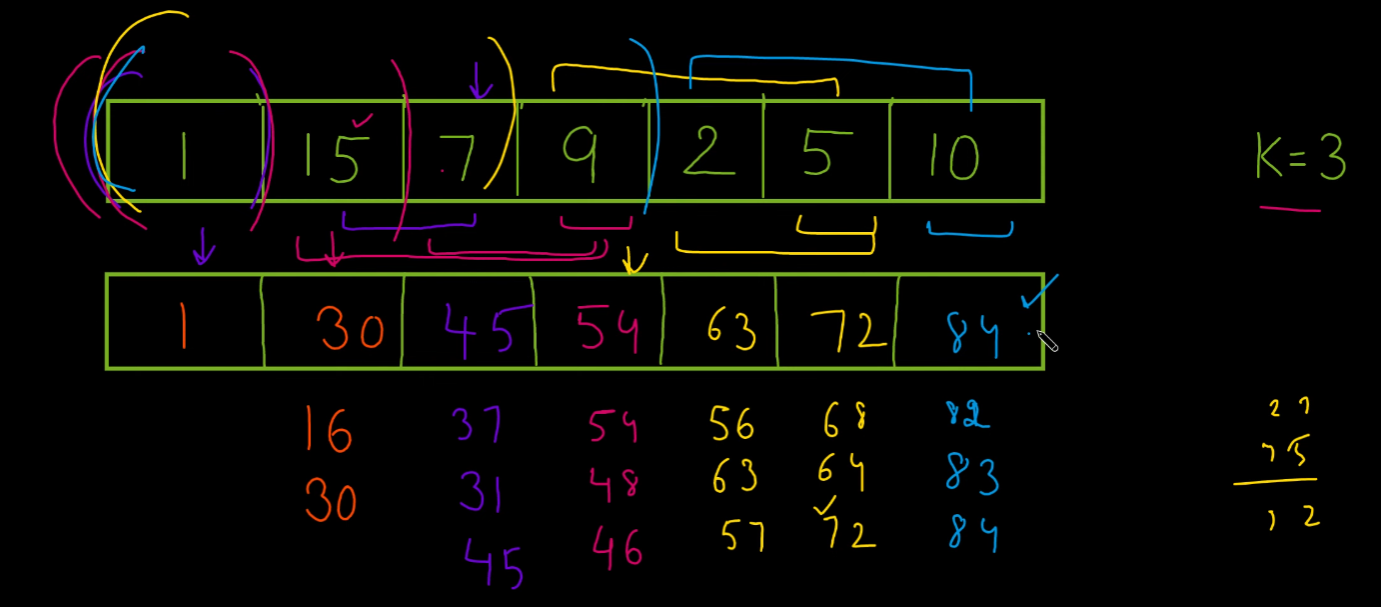 1 15 7 9 2 5 10 K=3
1 30 45 54 63 72 84
16 37 54 56 68 82
30 31 48 63 64 83
45 46 57 72 84
2 7
4 5
7 2